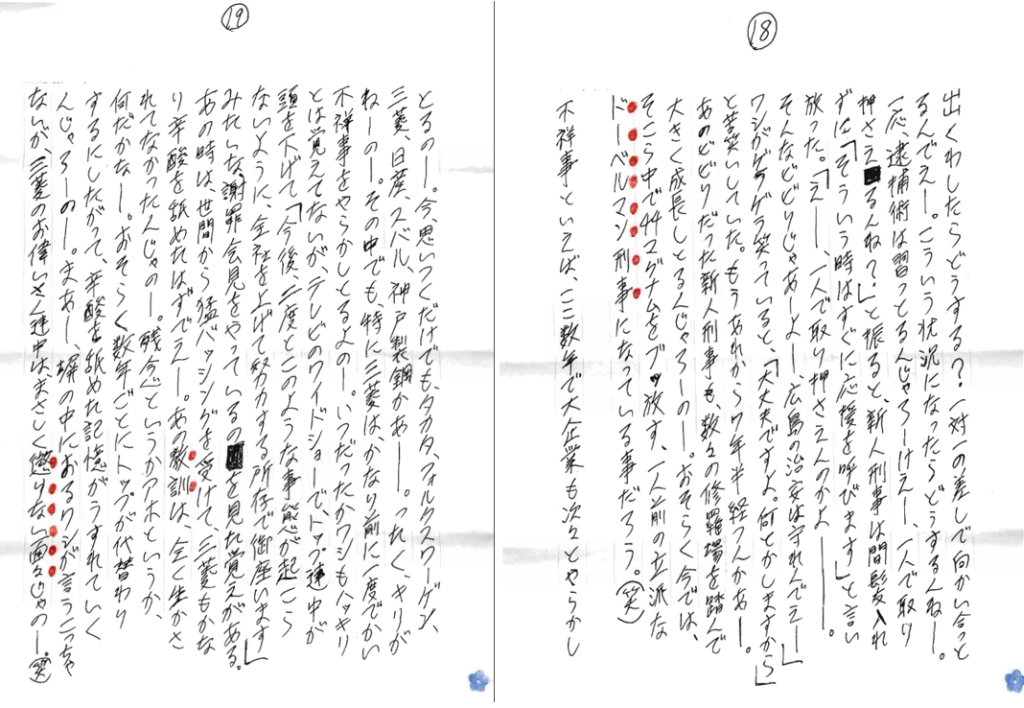 ⑱
出くわしたらどうする?一対一の差しで向かい合っと
るんでえー。こういう状況になったらどうするんねー。
一応、逮捕術は習っとるんじゃろーけえー、一人で取り
押さえるんね?」と振ると、新人刑事は間髪入れ
ずに「そういう時はすぐに応援を呼びます」と言い
放った。「えー、一人で取り押さえんのかよー。
そんなどどりじゃあーよー広島の治安は守れんでえー」
ワシがゲラゲラ笑っていると、「大丈夫ですよ。何とかしますから」
と苦笑いしていた。もうあれから9年半経つんかあー。
あのどどりだった新人刑事も、数々の修羅場を踏んで
大きく成長しとるんじゃろーのー。おそらく今では、
そこら中で44マグナムをブッ放す、一人前の立派な
ドーベルマン刑事になっている事だろう。(笑)
不祥事といえば、ここ数年で大企業も次々とやらかし
⑲
とるのー。今、思いつくだけでも、タカタ、フォルクスワーゲン、
三菱、日産、スバル、神戸製鋼かあー。ったく、キリが
ねーのー。その中でも、特に三菱は、かなり前に一度でかい
不祥事をやらかしとるよのー。いつだったかワシもハッキリ
とは覚えてないが、テレビのワイドショーで、トップ連中が
頭を下げて、「今後、二度とこのような事態が起こら
ないように、全社を上げて努力する所存で御座います」
みたいな、謝罪会見をやっているのを見た覚えがある。
あの時は世間から猛バッシングを受けて、三菱もかな
り辛酸を舐めたはずでえー。あの教訓は、全く生かさ
れてなかったんじゃのー。残念というかアホというか、
何だかなー。おそらく数年ごとにトップが代替わり
するにしたがって、辛酸を舐めた記憶がうすれていく
んじゃろーのー。まあー、塀の中におるワシが言うこっちゃ
ないが、三菱のお偉いさん連中はまさしく懲りない面々じゃのー。(笑)